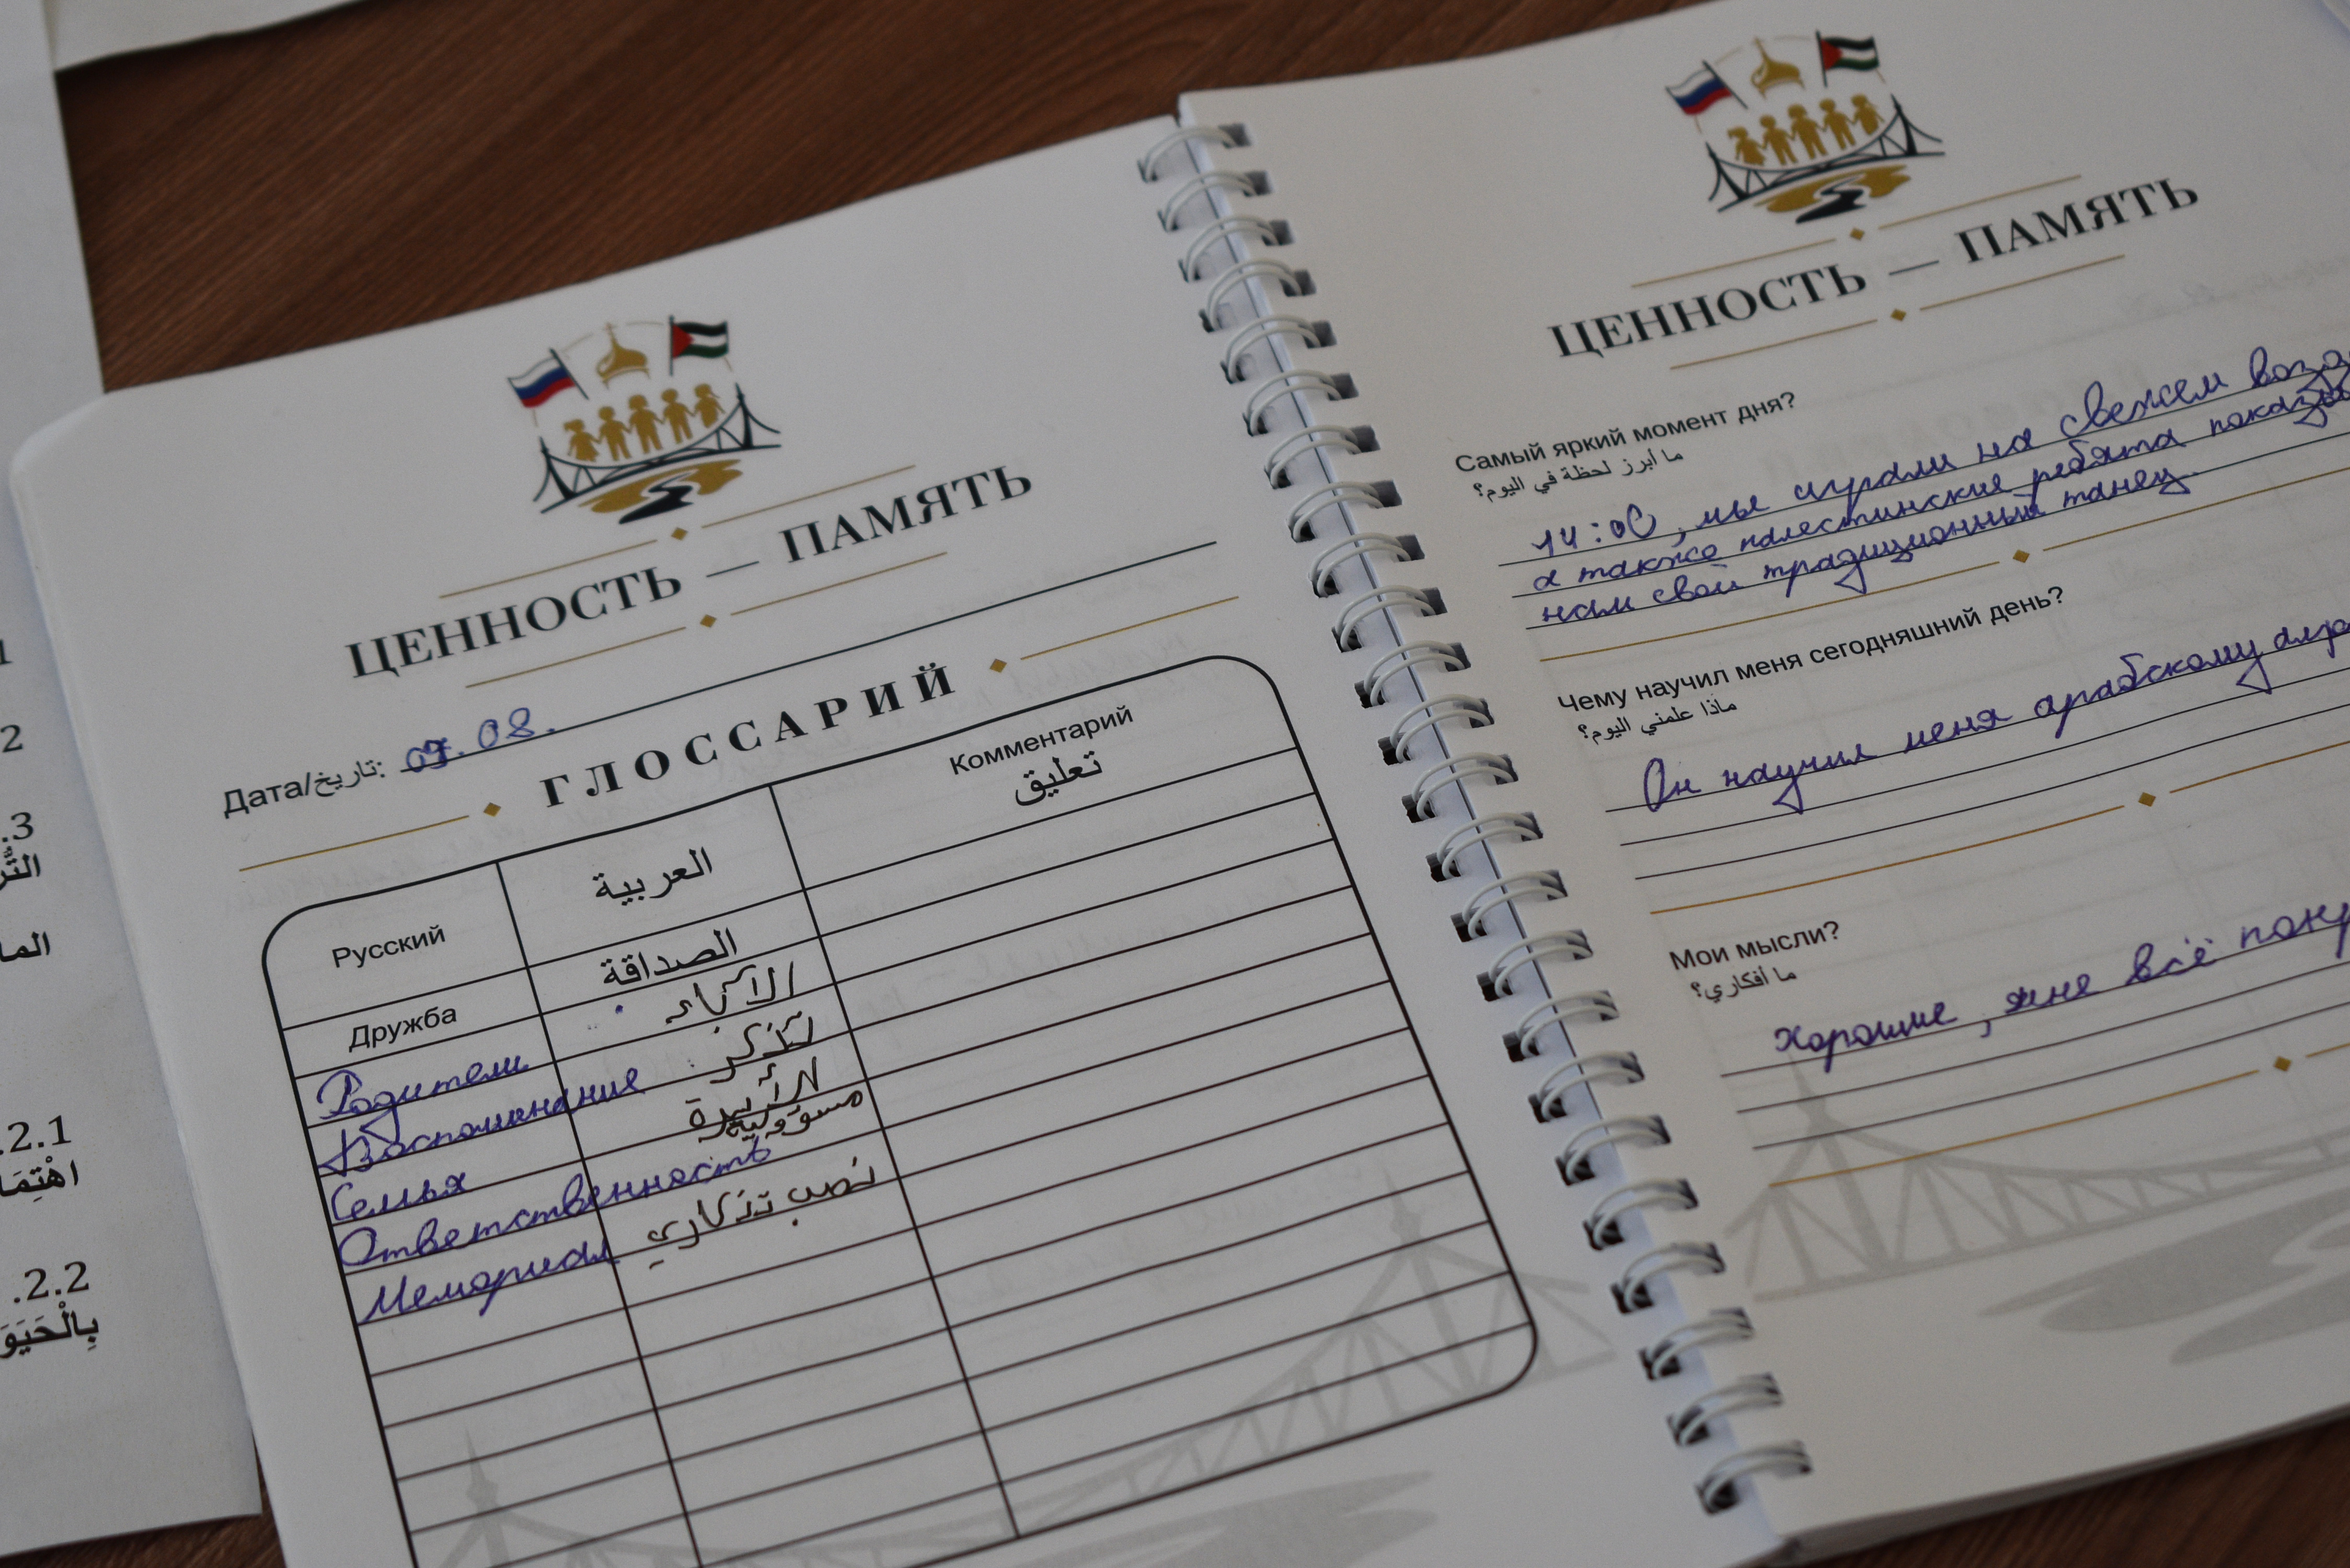 1
2
.3
الما
.2.1
.2.2
ЦЕННОСТЬ — ПАМЯТЬ
Дата/تاريخ: 09.08.
ГЛОССАРИЙ
Русский العربية Комментарий
تعليق
Дружба الصداقة
Родители الآباء
Воспоминание تذكر
Семья
Ответственность
Мемориал نصب تذكاري
ЦЕННОСТЬ — ПАМЯТЬ
Самый яркий момент дня?
ما أبرز لحظة في اليوم؟
14:00, мы играли на свежем
а также палестинские ребята
нам свой традиционный танец.
Чему научил меня сегодняшний день?
ماذا علمني اليوم؟
Он научил меня арабскому
Мои мысли?
ما أفكاري؟
Хорошие, мне всё